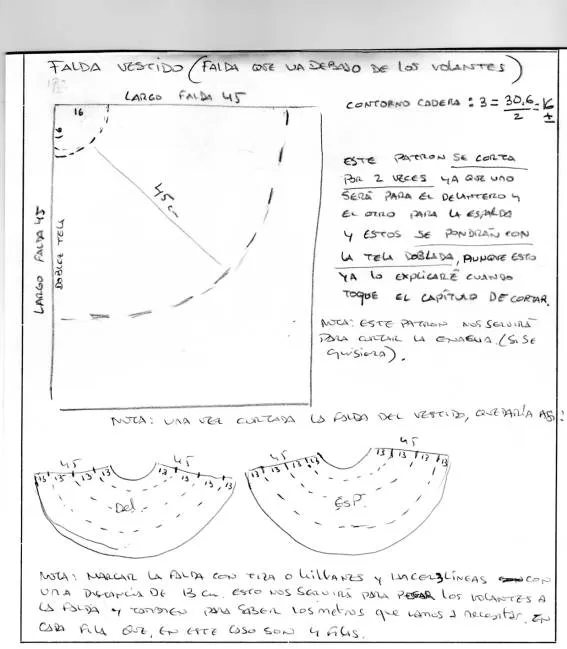 FALDA VESTIDO (FALDA QUE VA DEBAJO DE LOS VOLANTES)
LARGO FALDA 45
CONTORNO CADERA : 3 = 30,6/2 = 16 ±
16
16
45 cm
LARGO FALDA 45
DOBLEZ TELA
ESTE PATRON SE CORTA
POR 2 VECES YA QUE UNO
SERÁ PARA EL DELANTERO Y
EL OTRO PARA LA ESPALDA
Y ESTOS SE PONDRÁN CON
LA TELA DOBLADA, AUNQUE ESTO
YA LO EXPLICARÉ CUANDO
TOQUE EL CAPÍTULO DE CORTAR.
NOTA: ESTE PATRON NOS SERVIRÁ
PARA CORTAR LA ENAGUA. (SI SE
QUISIERA).
NOTA: UNA VEZ CORTADA LA FALDA DEL VESTIDO, QUEDARÍA ASÍ:
45 45 45 45
13 13 13 13 13 13 13 13 13 13 13 13 13 13 13
Del. ESP.
NOTA: MARCAR LA FALDA CON TIZA O HILVANES Y HACER 3 LÍNEAS CON
UNA DISTANCIA DE 13 cm. ESTO NOS SERVIRÁ PARA PEGAR LOS VOLANTES A
LA FALDA Y TAMBIEN PARA SABER LOS METROS QUE VAMOS A NECESITAR. EN
CADA FILA QUE, EN ESTE CASO SON 4 FILAS.